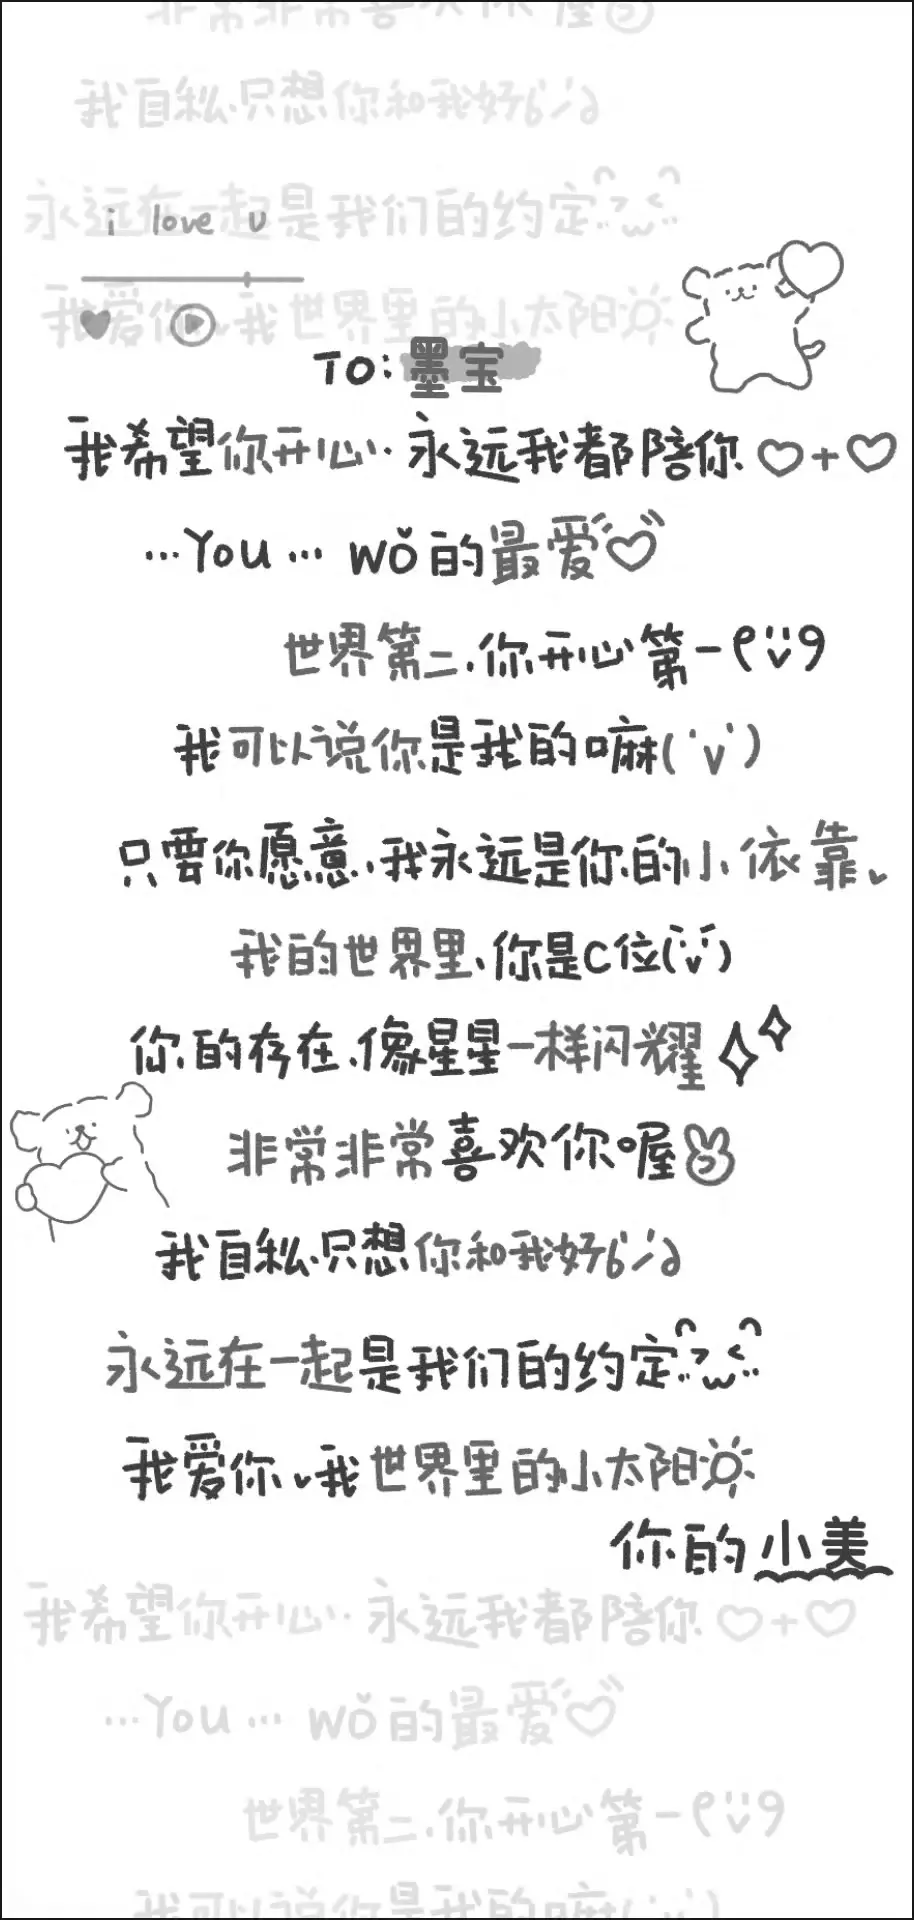 非常非常喜欢你喔
我自私只想你和我好
永远在一起是我们的约定
i love u
我爱你、我世界里的小太阳
TO:墨宝
我希望你开心·永远我都陪你♡+♡
…You… wǒ的最爱♡
世界第二、你开心第一
我可以说你是我的嘛(ˊvˋ)
只要你愿意、我永远是你的小依靠、
我的世界里、你是C位(ˊvˋ)
你的存在、像星星一样闪耀
非常非常喜欢你喔
我自私、只想你和我好
永远在一起是我们的约定
我爱你、我世界里的小太阳
你的小美
我希望你开心·永远我都陪你♡+♡
…You… wǒ的最爱♡
世界第二、你开心第一
我可以说你是我的嘛(ˊvˋ)